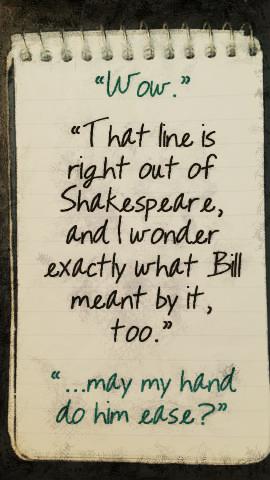 “Wow.”
“That line is
right out of
Shakespeare,
and I wonder
exactly what Bill
meant by it,
too.”
“...may my hand
do him ease?”